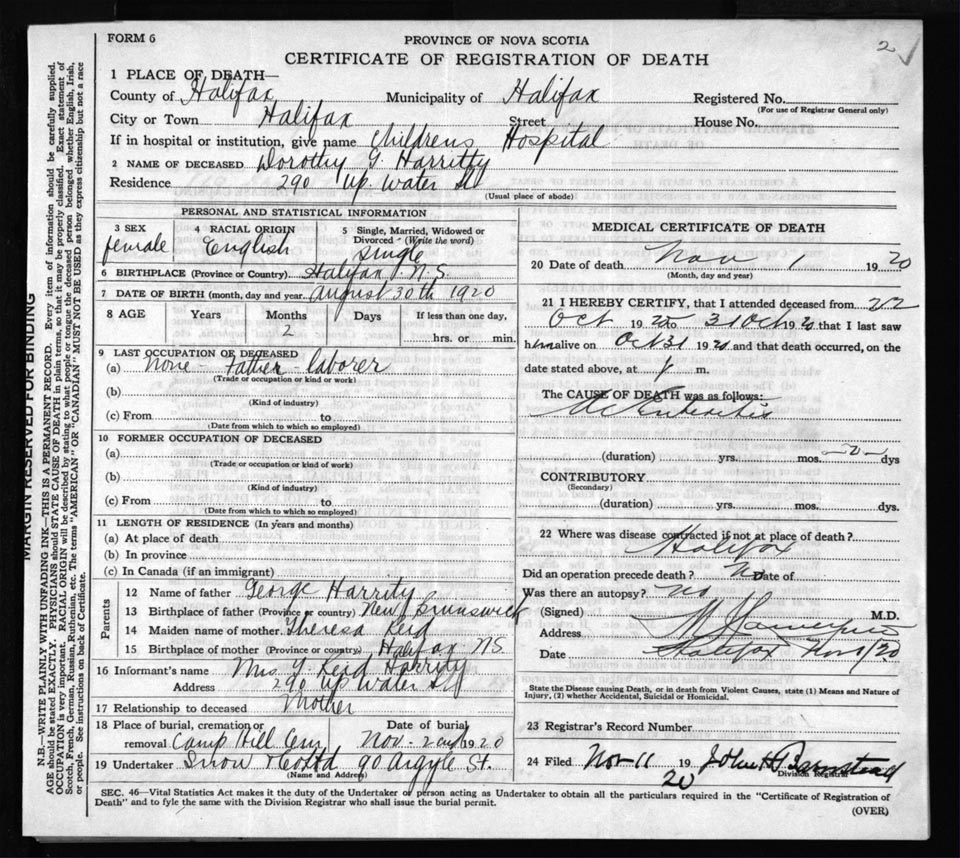 FORM 6
2
PROVINCE OF NOVA SCOTIA
CERTIFICATE OF REGISTRATION OF DEATH
1 PLACE OF DEATH—
County of Halifax Municipality of Halifax Registered No.
(For use of Registrar General only)
City or Town Halifax Street House No.
If in hospital or institution, give name Childrens Hospital
2 NAME OF DECEASED Dorothy G. Harritty
Residence 290 Up. Water St
(Usual place of abode)
PERSONAL AND STATISTICAL INFORMATION
3 SEX female
4 RACIAL ORIGIN English
5 Single, Married, Widowed or Divorced—(Write the word) single
6 BIRTHPLACE (Province or Country) Halifax N.S.
7 DATE OF BIRTH (month, day and year) August 30th 1920
8 AGE Years Months Days If less than one day,
2 hrs. or min.
9 LAST OCCUPATION OF DECEASED
(a) None - Father - laborer
(Trade or occupation or kind or work)
(b)
(Kind of industry)
(c) From to
(Date from which to which so employed)
10 FORMER OCCUPATION OF DECEASED
(a)
(Trade or occupation or kind of work)
(b)
(Kind of industry)
(c) From to
(Date from which to which so employed)
11 LENGTH OF RESIDENCE (In years and months)
(a) At place of death
(b) In province
(c) In Canada (if an immigrant)
Parents
12 Name of father George Harrity
13 Birthplace of father (Province or country) New Brunswick
14 Maiden name of mother Theresa Reid
15 Birthplace of mother (Province or country) Halifax N.S.
16 Informant's name Mrs Reid Harrity
Address 290 Up Water St
17 Relationship to deceased Mother
18 Place of burial, cremation or Date of burial
removal Camp Hill Cem Nov. 2nd 1920
19 Undertaker Snow & Co Ltd 90 Argyle St.
(Name and Address)
MEDICAL CERTIFICATE OF DEATH
20 Date of death Nov 1 1920
(Month, day and year)
21 I HEREBY CERTIFY, that I attended deceased from 22
Oct 1920 to 31 Oct 1920 that I last saw
him alive on Oct 31 1920 and that death occurred, on the
date stated above, at 1 m.
The CAUSE OF DEATH was as follows:
Enteritis
(duration) yrs. mos. 2 dys
CONTRIBUTORY
(Secondary)
(duration) yrs. mos. dys.
22 Where was disease contracted if not at place of death?
Halifax
Did an operation precede death? No Date of
Was there an autopsy? No
(Signed) M.D.
Address Halifax
Date Nov 1/20
State the Disease causing Death, or in death from Violent Causes, state (1) Means and Nature of
Injury, (2) whether Accidental, Suicidal or Homicidal.
23 Registrar's Record Number
24 Filed Nov 11 1920 John H Barnstead
Division Registrar
SEC. 46—Vital Statistics Act makes it the duty of the Undertaker or person acting as Undertaker to obtain all the particulars required in the "Certificate of Registration of
Death" and to fyle the same with the Division Registrar who shall issue the burial permit.
(OVER)
MARGIN RESERVED FOR BINDING
N.B.—WRITE PLAINLY WITH UNFADING INK—THIS IS A PERMANENT RECORD. Every item of information should be carefully supplied.
AGE should be stated EXACTLY. PHYSICIANS should STATE CAUSE OF DEATH in plain terms, so that it may be properly classified. Exact statement of
OCCUPATION is very important. RACIAL ORIGIN will be described by stating to what people or tongue the deceased person belonged whether English, Irish,
Scotch, French, German, Russian, Ruthenian, etc. The terms "AMERICAN" OR "CANADIAN" MUST NOT BE USED as they express citizenship but not a race
or people. See instructions on back of Certificate.